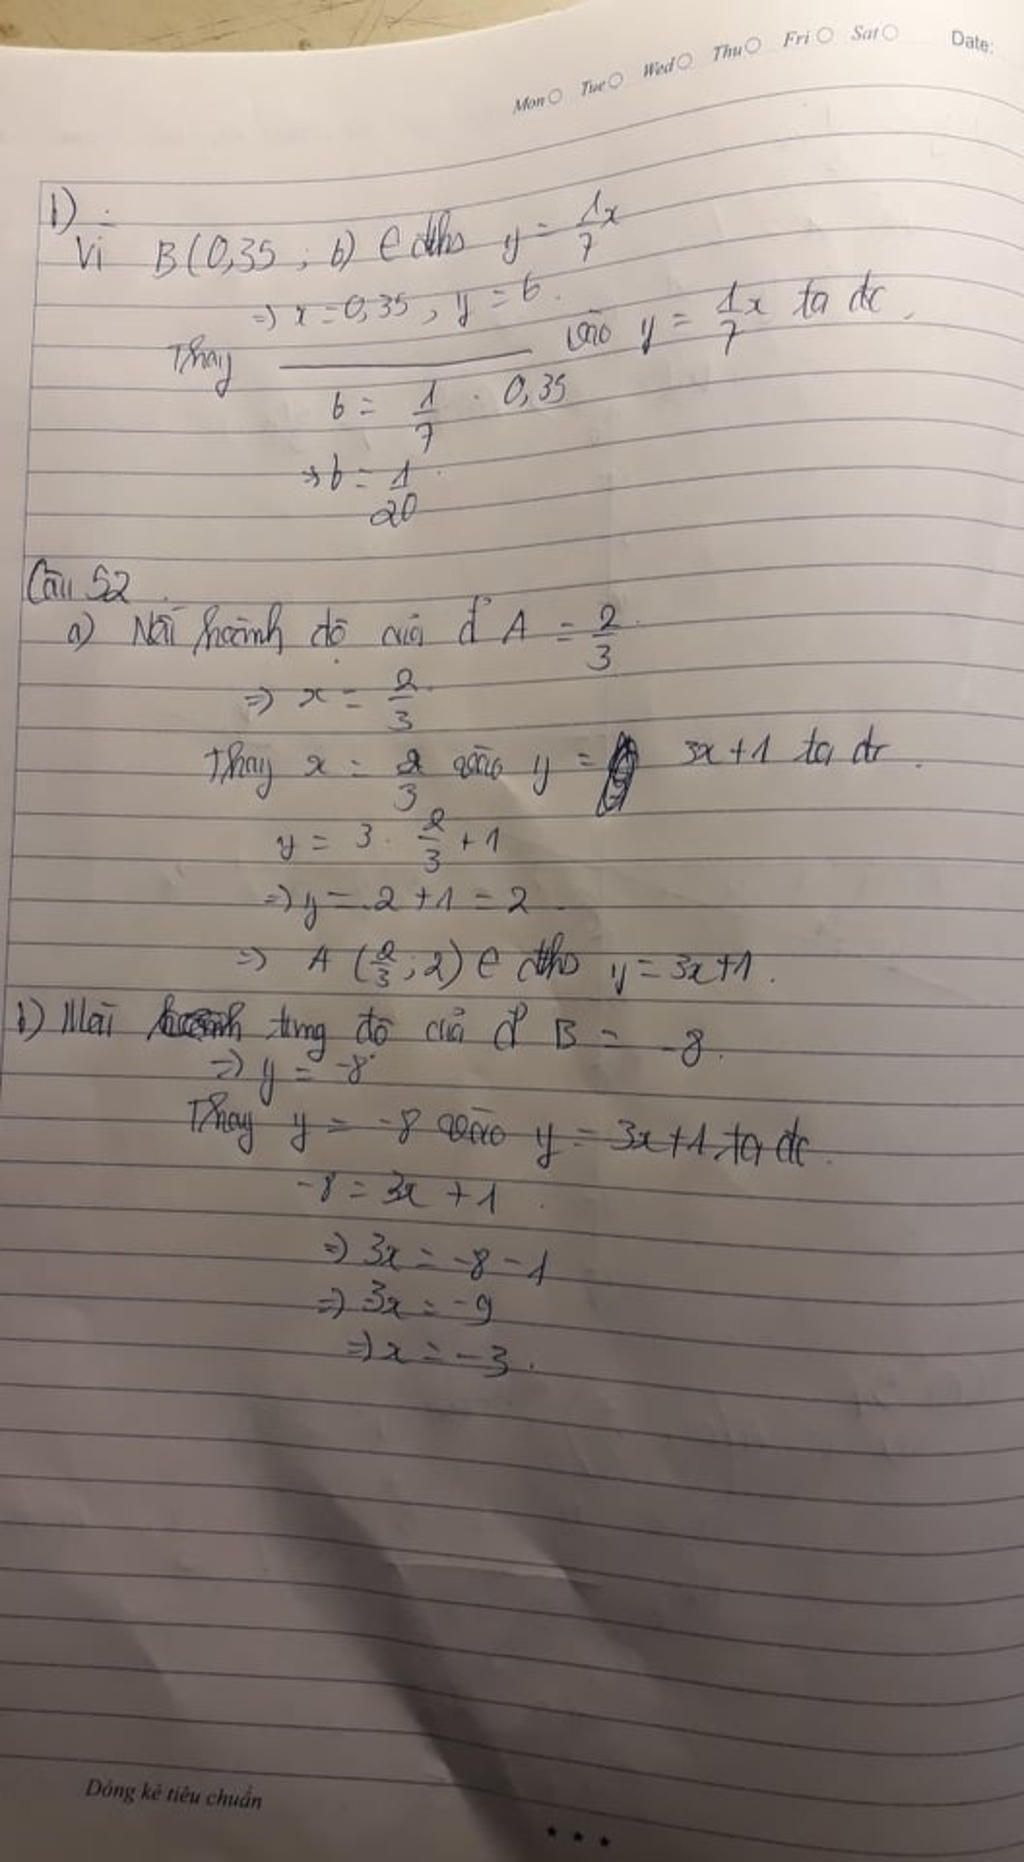 Mon Tue Wed Thu Fri Sat Date:
1)
Vì B(0,35 ; b) ∈ đths y = 1/7 x
=> x = 0,35 , y = b.
Thay ——— vào y = 1/7 x ta đc
b = 1/7 . 0,35
=> b = 1/20
Câu 52
a) Nếu hoành độ của đ' A = 2/3
=> x = 2/3
Thay x = 2/3 vào y = 3x+1 ta đc
y = 3 . 2/3 + 1
=> y = 2 + 1 = 2
=> A (2/3 ; 2) ∈ đths y = 3x+1.
b) tung độ của đ' B = -8.
=> y = -8
Thay y = -8 vào y = 3x+1 ta đc
-8 = 3x + 1
=> 3x = -8 - 1
=> 3x = -9
=> x = -3.
Dòng kẻ tiêu chuẩn